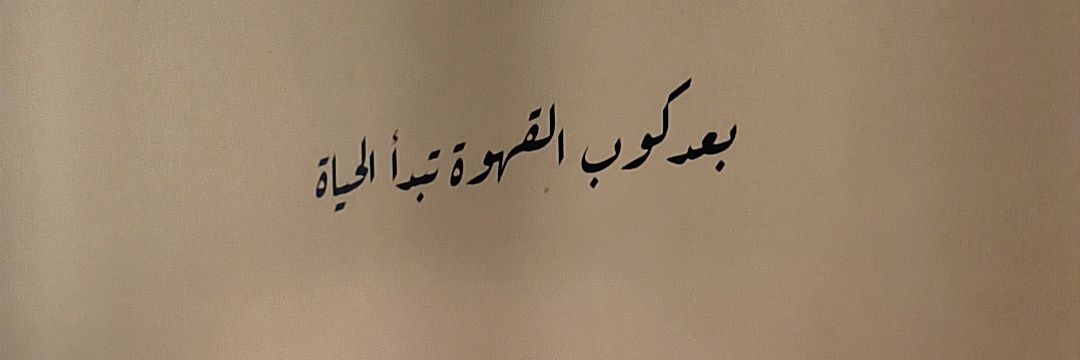 بعد كوب القهوة تبدأ الحياة